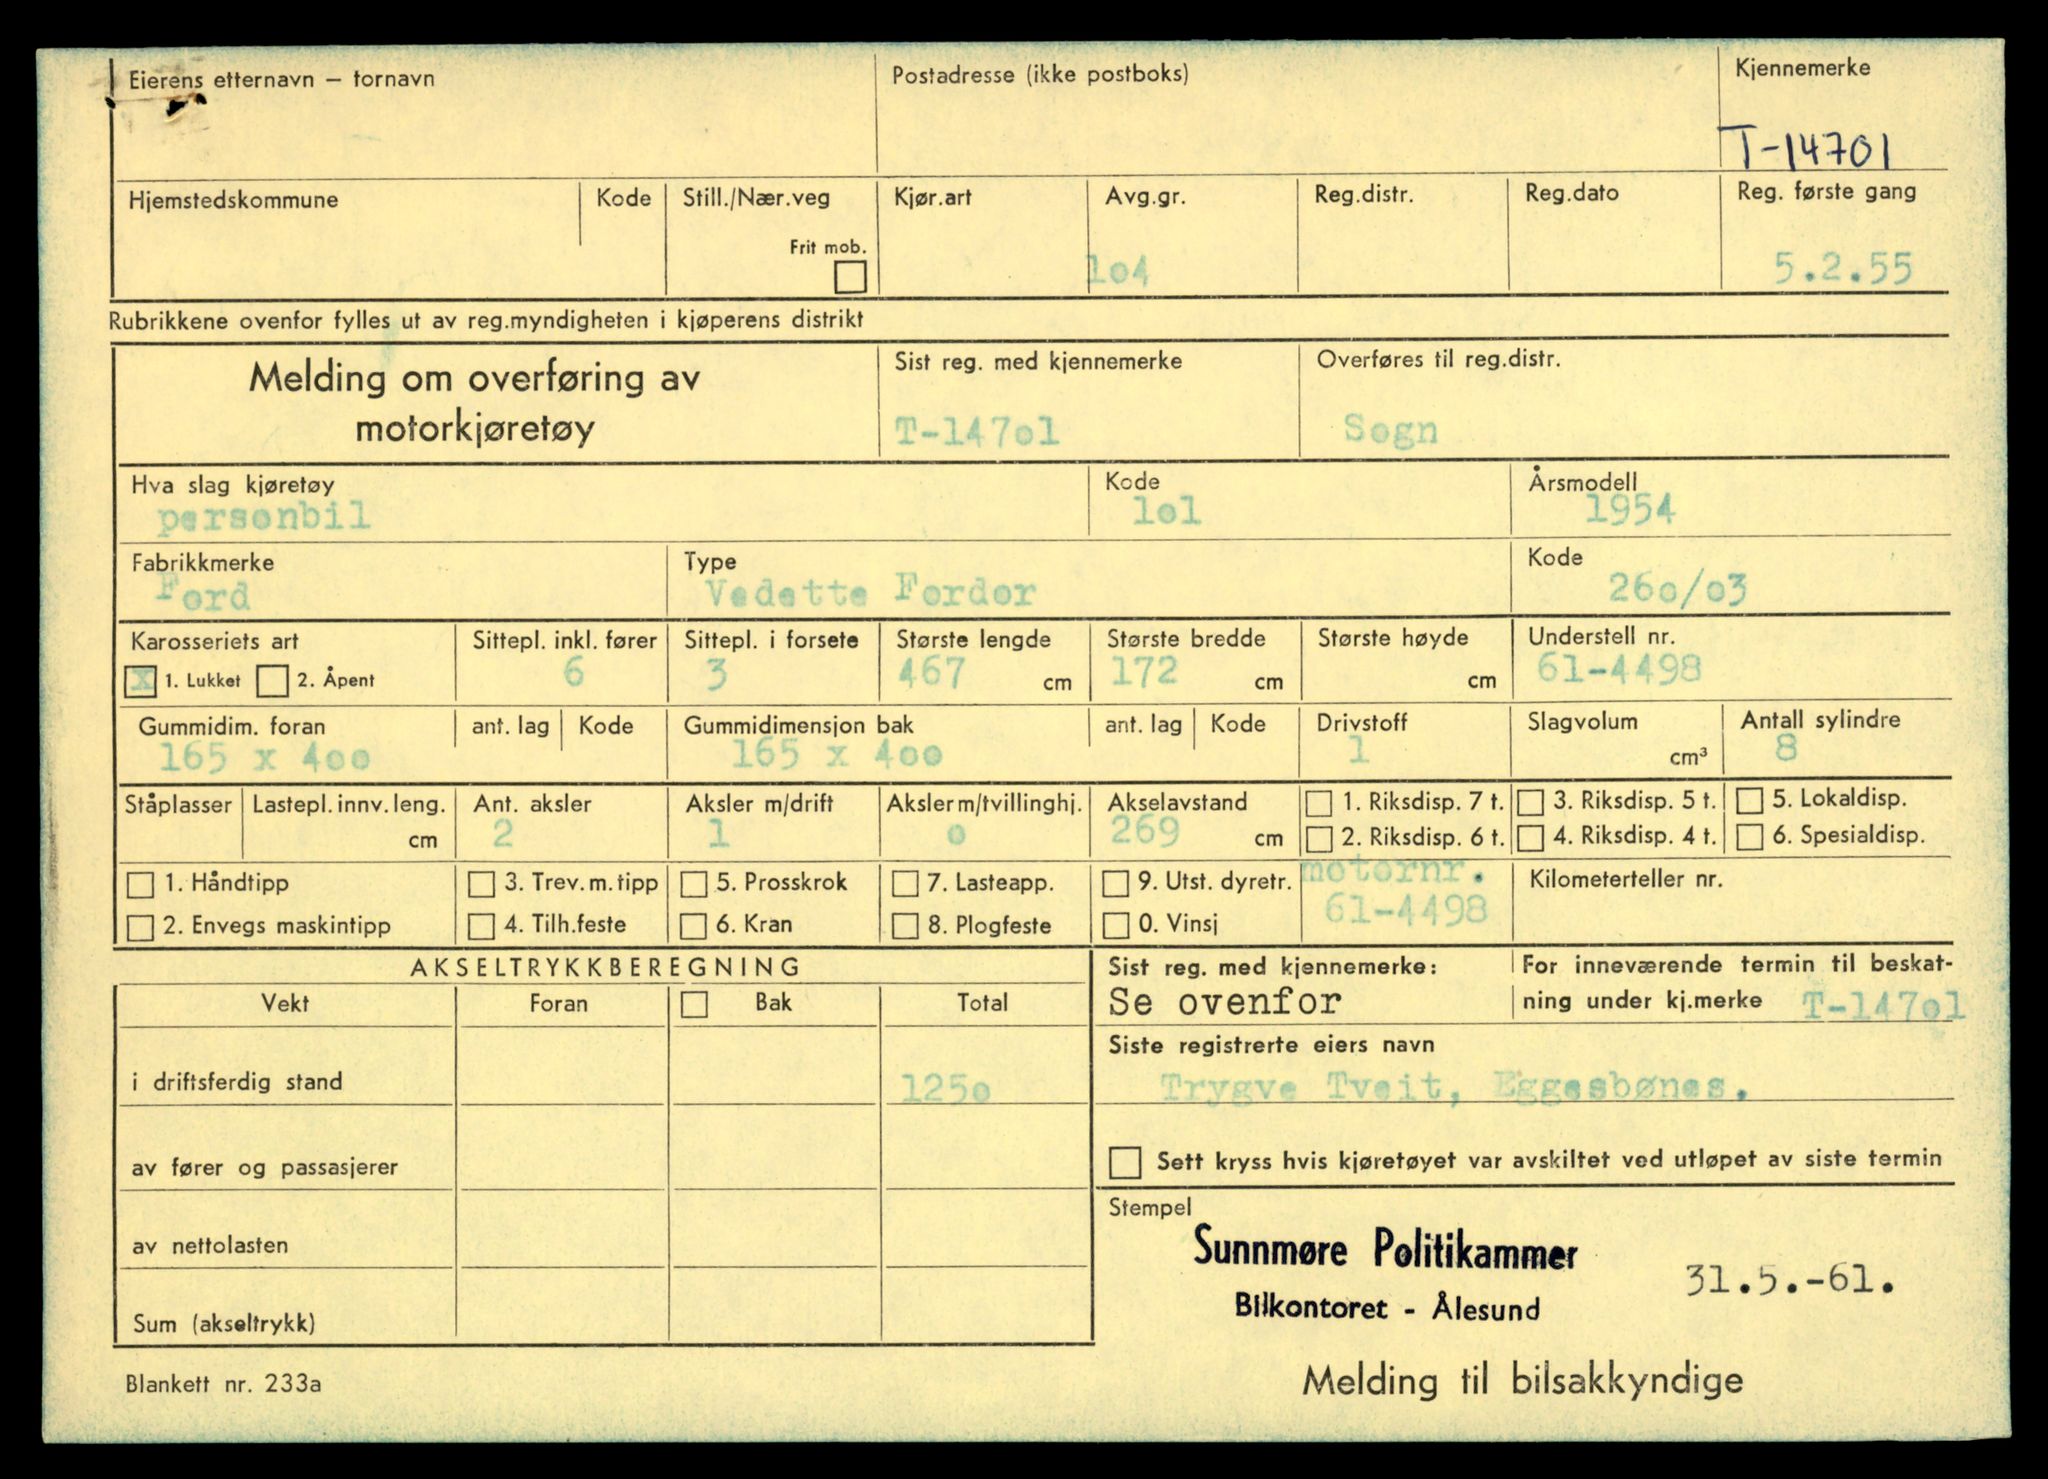 Eierens etternavn – fornavn
Postadresse (ikke postboks)
Kjennemerke
T-14701
Hjemstedskommune
Kode
Still./Nær.veg
Frit mob.
Kjør.art
Avg.gr.
lo4
Reg.distr.
Reg.dato
Reg. første gang
5.2.55
Rubrikkene ovenfor fylles ut av reg.myndigheten i kjøperens distrikt
Melding om overføring av
motorkjøretøy
Sist reg. med kjennemerke
T-147o1
Overføres til reg.distr.
Sogn
Hva slag kjøretøy
personbil
Kode
lol
Årsmodell
1954
Fabrikkmerke
Ford
Type
Vedette Fordor
Kode
26o/o3
Karosseriets art
X 1. Lukket 2. Åpent
Sittepl. inkl. fører
6
Sittepl. i forsete
3
Største lengde
467 cm
Største bredde
172 cm
Største høyde
cm
Understell nr.
61-4498
Gummidim. foran
165 x 4oo
ant. lag
Kode
Gummidimensjon bak
165 x 4oo
ant. lag
Kode
Drivstoff
1
Slagvolum
cm³
Antall sylindre
8
Ståplasser
Lastepl. innv. leng.
cm
Ant. aksler
2
Aksler m/drift
1
Aksler m/tvillinghj.
o
Akselavstand
269 cm
1. Riksdisp. 7 t. 3. Riksdisp. 5 t. 5. Lokaldisp.
2. Riksdisp. 6 t. 4. Riksdisp. 4 t. 6. Spesialdisp.
1. Håndtipp 3. Trev. m. tipp 5. Prosskrok 7. Lasteapp. 9. Utst. dyretr.
2. Envegs maskintipp 4. Tilh.feste 6. Kran 8. Plogfeste 0. Vinsj
motornr.
61-4498
Kilometerteller nr.
AKSELTRYKKBEREGNING
Vekt Foran Bak Total
i driftsferdig stand 125o
av fører og passasjerer
av nettolasten
Sum (akseltrykk)
Blankett nr. 233a
Sist reg. med kjennemerke:
Se ovenfor
For inneværende termin til beskat-
ning under kj.merke T-147o1
Siste registrerte eiers navn
Trygve Tveit, Eggesbønes.
Sett kryss hvis kjøretøyet var avskiltet ved utløpet av siste termin
Stempel
Sunnmøre Politikammer
Bilkontoret - Ålesund
31.5.-61.
Melding til bilsakkyndige